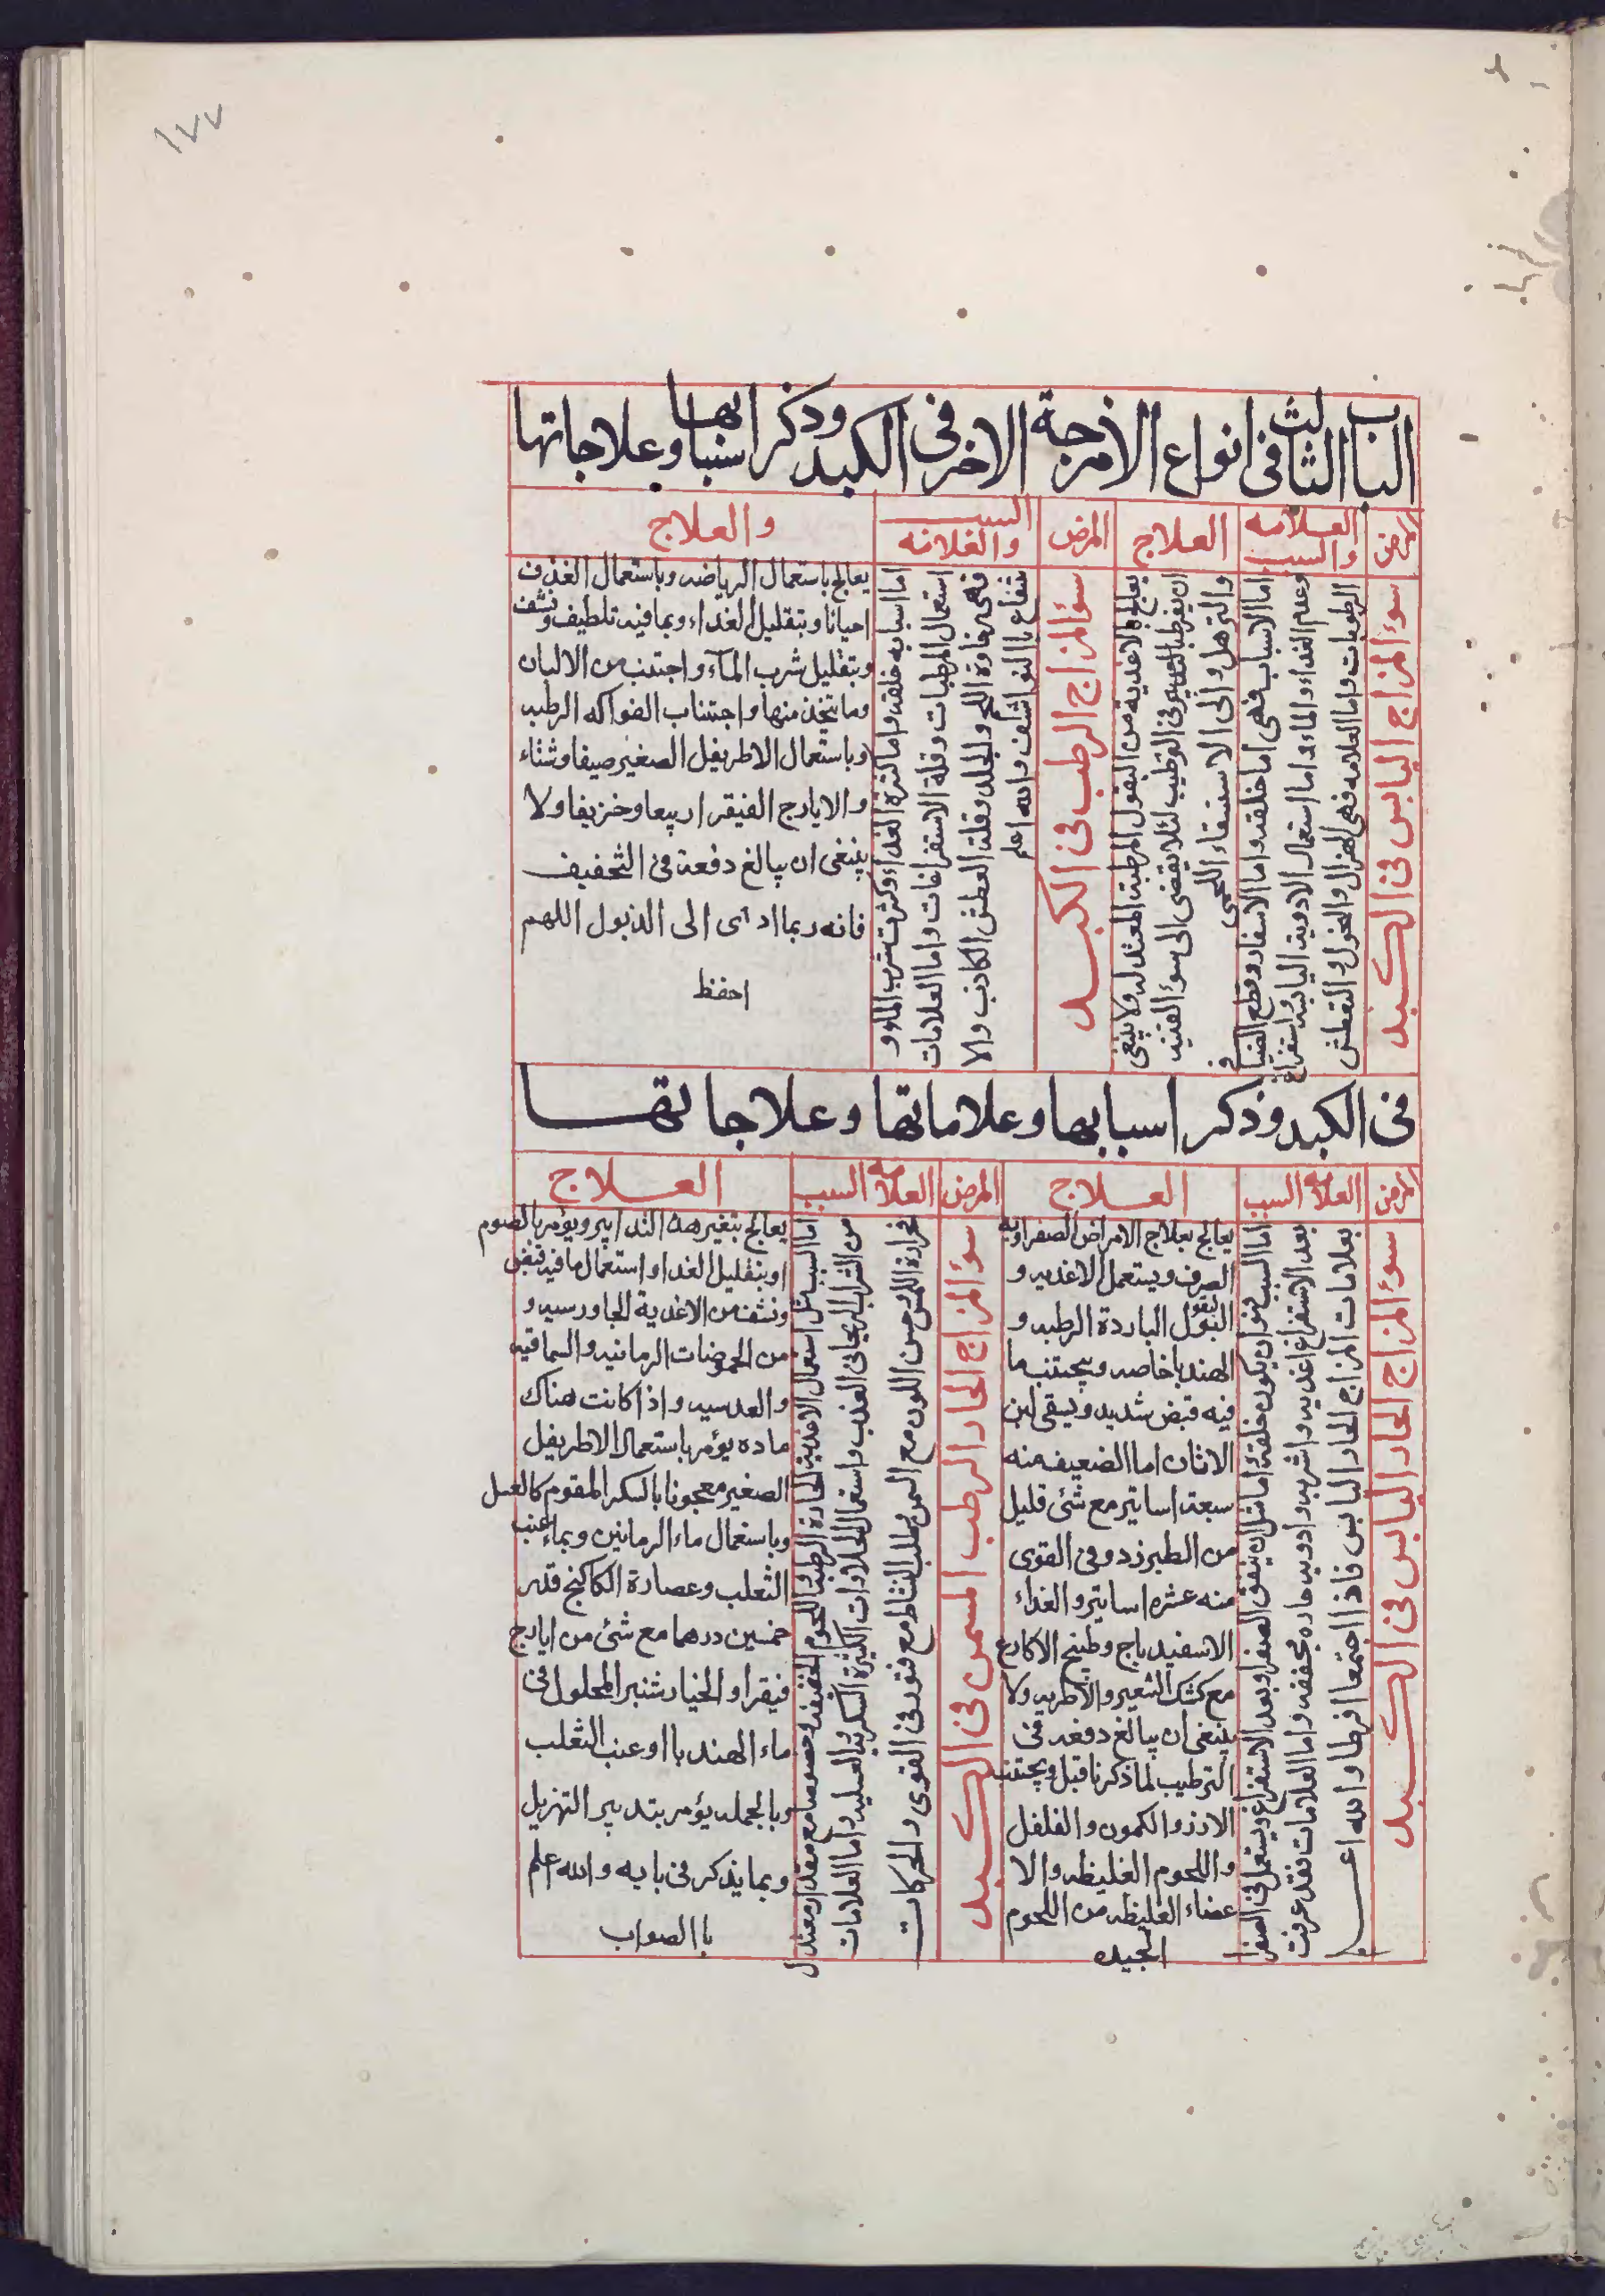 ١٧٧
الباب الثالث فى انواع الامزجة الاخر فى الكبد وذكر اسبابها وعلاجاتها
المرض
العلامه والسبب
العلاج
المرض
السبب والعلامه
والعلاج
سوء المزاج اليابس فى الكبد
اما الاسباب فهى اما خلقه واما الاسفار وقطع الفيافى
وعدم الغداء والماء واما استعمال الادوية اليابسة واستفراغ
الرطوبات واما العلامه فهى الهزال والنحول والتعطش
يعالج بالاغذية من البقول المرطبة المعتدله ولا ينبغى
ان يفرط التدبير فى الترطيب لئلا يفضى الى سوء القنيه
والترهل والى الاستسقاء اللحمى
سوء المزاج الرطب فى الكبد
اما اسبابه خلقه واما كثرة الغداء وكثرت شرب الماء و
استعمال المرطبات وقلة الاستفراغات واما العلامات
فهى رخاوة اللحم والجلد وقلة العطش الكاذب والا
نتفاع باالنواشف والله اعلم
يعالج باستعمال الرياضه وباستعمال القذف
احيانا وبتقليل الغداء وبما فيه تلطيف ونشف
وبتقليل شرب المآء واجتنب من الالبان
وما يتخذ منها واجتناب الفواكه الرطبه
وباستعمال الاطريفل الصغير صيفا وشتاء
والايارج الفيقرا ربيعا وخريفا ولا
ينبغى ان يبالغ دفعة فى التجفيف
فانه ربما ادى الى الذبول اللهم
احفظ
فى الكبد وذكر اسبابها وعلاماتها وعلاجاتها
المرض
العلامه السبب
العلاج
المرض
العلامه السبب
العلاج
سوء المزاج الحار اليابس فى الكبد
اما السبب فهو ان يكون خلقة اما مثل ان يتفق الصفرا وبعد الاستفراغ ويستعمل فى الصفرا
بعد الاستفراغ اغذيه واشربه وادويه حاره مجففه واما العلامات فقد عرفت
بعلامات المزاج الحار اليابس فاذا اجتمعا افرطا والله اعلم
يعالج بعلاج الامراض الصفراويه
الصرف ويستعمل الاغديه و
البقول الباردة الرطبه و
الهندبا خاصه ويجتنب ما
فيه قبض شديد ويسقى لبن
الاتان اما الضعيف منه
سبعة اساتير مع شئ قليل
من الطبرزد وفى القوى
منه عشره اساتير والغداء
الاسفيدباج وطبيخ الاكارع
مع كشك الشعير والاطريه ولا
ينبغى ان يبالغ دفعه فى
الترطيب لما ذكرنا قبل ويجتنب
الارز والكمون والفلفل
واللحوم الغليظه والا
عضاء الغليظه من اللحوم
الجيده
سوء المزاج الحار الرطب المسمن فى الكبد
اما السبب مثل استعمال الاغذية الحارة الرطبة واللحوم الخفيفه وخصوصا مع مقدار معتدل
من الشراب الريحانى العذب واستعمال الحلاوات الكثيرة السكرية والعسليه واما العلامات
فحرارة اللمس وحسن اللون مع السمن وطلب النشاط مع فتور فى القوى والحركات
يعالج بتغير هذه التدابير ويؤمر بالصوم
او بتقليل الغدا واستعمال ما فيه قبض
ونشف من الاغدية الجاورسيه و
من الحموضات الرمانيه والسماقيه
والعدسيه واذا كانت هناك
ماده يؤمر باستعمال الاطريفل
الصغير معجونا باالسكر المقوم كالعسل
وباستعمال ماء الرمانين وبماء عنب
الثعلب وعصارة الكاكنج قدر
خمسين درهما مع شئ من ايارج
فيقرا والخيار شنبر المحلول فى
ماء الهندبا او عنب الثعلب
وبالجمله يؤمر بتدبير التهزيل
وبما يذكر فى بابه والله اعلم
باالصواب